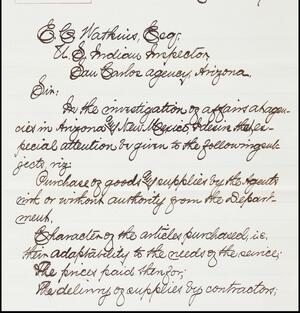 E. C. Watkins, Esq;
U. S. Indian Inspector,
San Carlos Agency, Arizona.
Sir:
In the investigation of affairs at agen-
cies in Arizona & New Mexico I desire that es-
pecial attention be given to the following sub-
jects, viz:
Purchase of goods & supplies by the Agents
with or without authority from the Depart-
ment,
Character of the articles purchased, i.e.
their adaptability to the needs of the service;
The prices paid therefor;
The delivery of supplies by contractors;